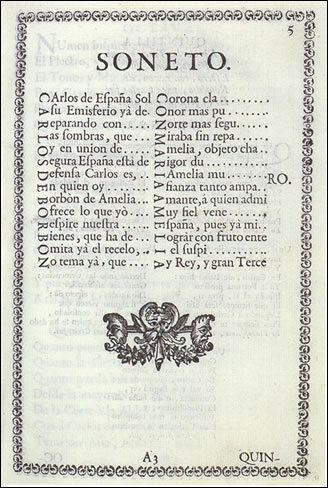 5
SONETO.
CArlos de España Sol Corona cla........
A su Emisferio yà de Onor mas pu......
Reparando con.... Norte mas segu.....
Las sombras, que .. Miraba sin repa...
Oy en union de ... Amelia, objeto cha..
Segura España està de Rigor du ......
Defensa Carlos es, .. I Amelia mu .....
RO.
En quien oy ..... Afianza tanto ampa..
Borbòn de Amelia .. Amante, à quien admi
Ofrece lo que yò... Muy fiel vene.....
Respire nuestra .... España, pues yà mi..
Bienes, que ha de .. Lograr con fruto ente
Omita yà el recelo,.. I el suspi........
No tema yà, que .... Ay Rey, y gran Terce
A3
QUIN-